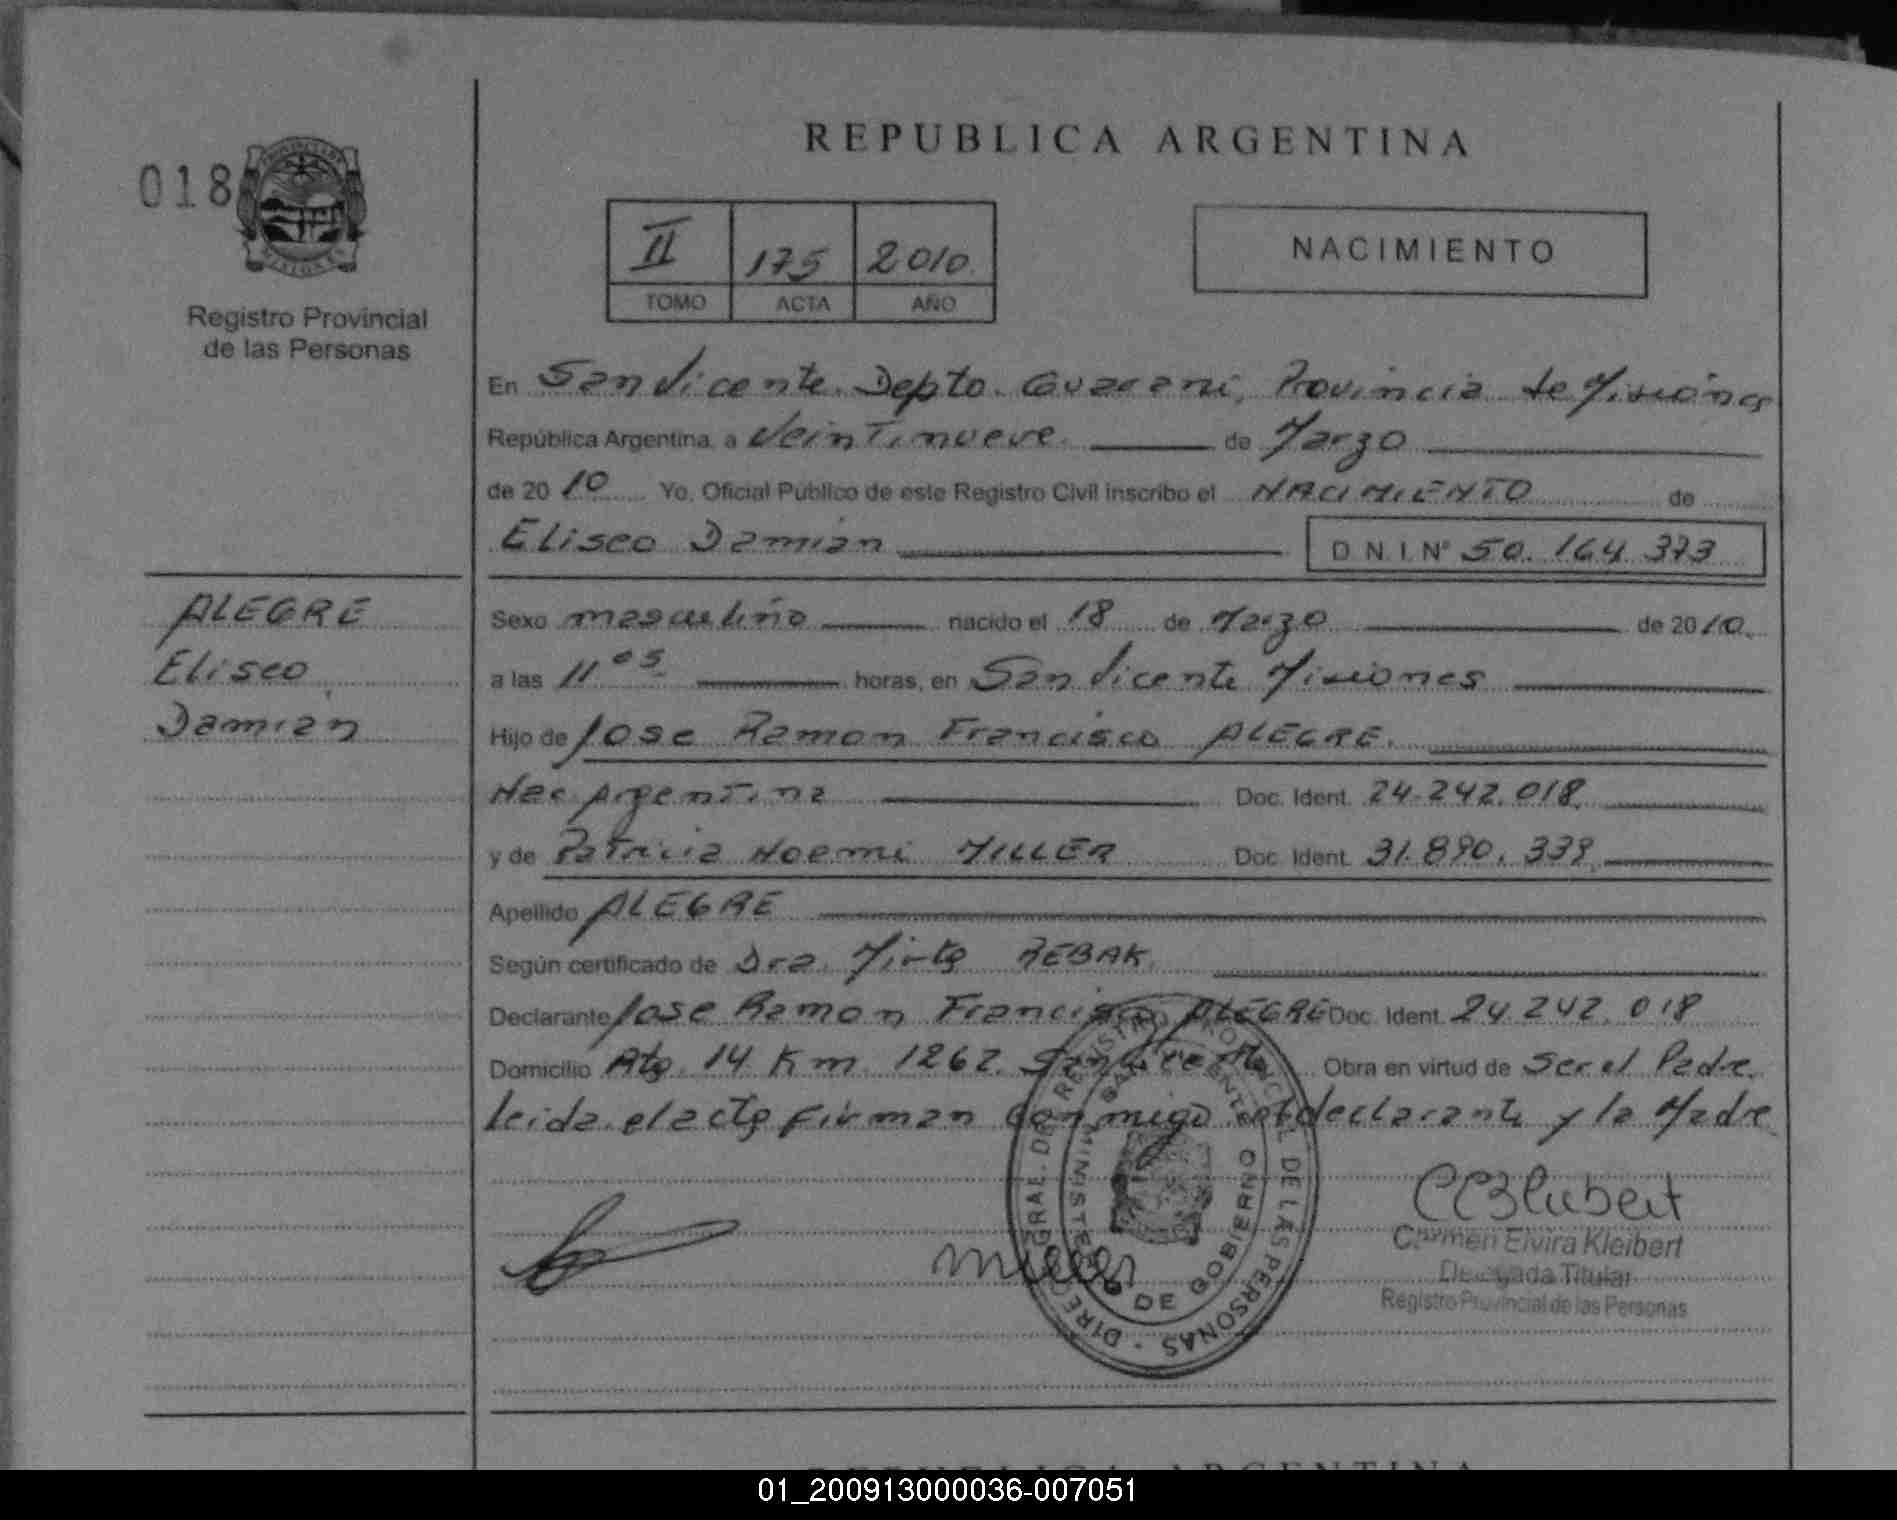 REPUBLICA ARGENTINA
018
PROVINCIA DE MISIONES
Registro Provincial
de las Personas
II 175 2010
TOMO ACTA AÑO
NACIMIENTO
En San Vicente Depto. Guarani, Provincia de Misiones
República Argentina, a Veintinueve de Marzo
de 2010 Yo, Oficial Público de este Registro Civil inscribo el NACIMIENTO de
Eliseo Damian D.N.I. N° 50.164.373
ALEGRE
Eliseo
Damian
Sexo masculino nacido el 18 de Marzo de 2010.
a las 11 05 horas, en San Vicente Misiones
Hijo de Jose Ramon Francisco ALEGRE.
Nac. Argentina Doc. Ident. 24.242.018
y de Patricia Noemi MILLER Doc. Ident. 31.890.339
Apellido ALEGRE
Según certificado de Dra. Mirta REBAK.
Declarante Jose Ramon Francisco ALEGRE Doc. Ident. 24.242.018
Domicilio Rta. 14 Km 1262. San Vicente Obra en virtud de Ser el Padre.
leida el acta firman conmigo el declarante y la Madre
DIREC. GRAL. DEL REGISTRO PROVINCIAL DE LAS PERSONAS
MINISTERIO DE GOBIERNO
SAN VICENTE
Miller
CCKleibert
Carmen Elvira Kleibert
Delegada Titular
Registro Provincial de las Personas
REPUBLICA ARGENTINA
01_200913000036-007051